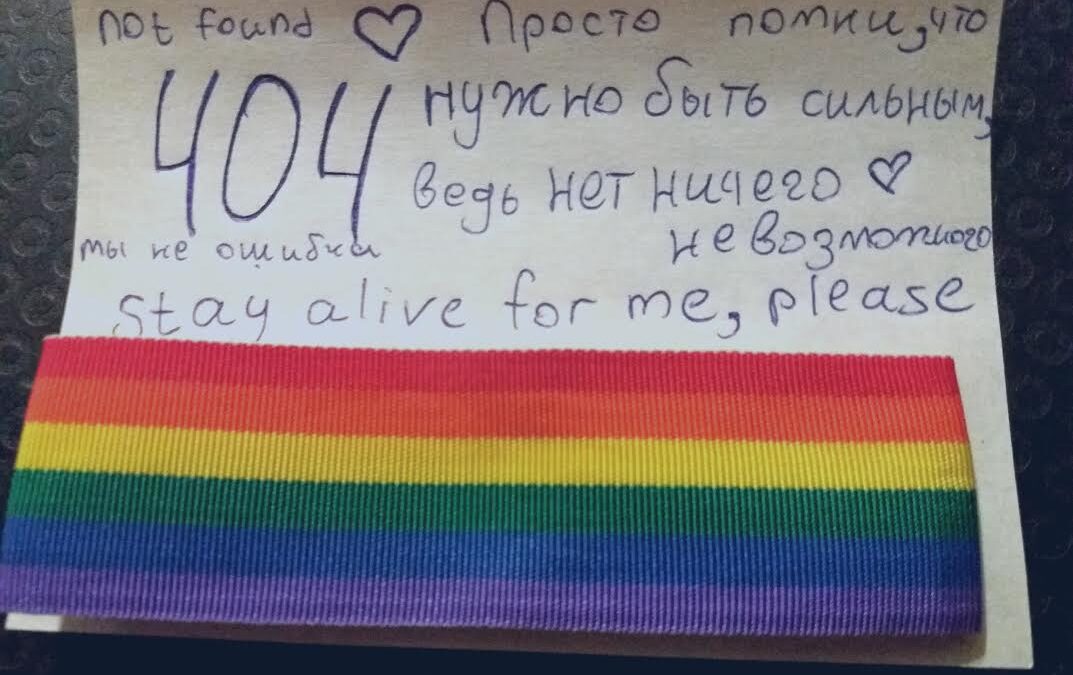 not found ♡ Просто помни, что
404 нужно быть сильным,
ведь нет ничего ♡
невозможного
ты не ошибка
stay alive for me, please